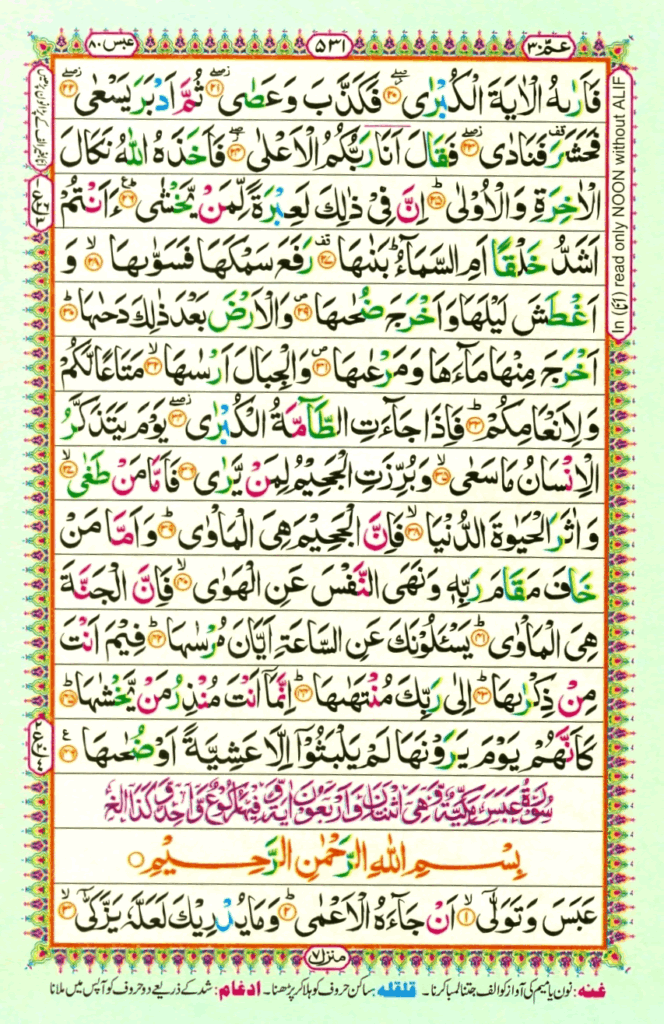 عَمَّ ٣٠
٥٣١
عبس ٨٠
فَاَرٰىهُ الْاٰيَةَ الْكُبْرٰى ﴿٢٠﴾ فَكَذَّبَ وَعَصٰى ﴿٢١﴾ ثُمَّ اَدْبَرَ يَسْعٰى ﴿٢٢﴾
فَحَشَرَ فَنَادٰى ﴿٢٣﴾ فَقَالَ اَنَا رَبُّكُمُ الْاَعْلٰى ﴿٢٤﴾ فَاَخَذَهُ اللّٰهُ نَكَالَ
الْاٰخِرَةِ وَالْاُوْلٰى ﴿٢٥﴾ اِنَّ فِىْ ذٰلِكَ لَعِبْرَةً لِّمَنْ يَّخْشٰى ﴿٢٦﴾ ءَاَنْتُمْ
اَشَدُّ خَلْقًا اَمِ السَّمَآءُ بَنٰىهَا ﴿٢٧﴾ رَفَعَ سَمْكَهَا فَسَوّٰىهَا ﴿٢٨﴾ وَ
اَغْطَشَ لَيْلَهَا وَاَخْرَجَ ضُحٰىهَا ﴿٢٩﴾ وَالْاَرْضَ بَعْدَ ذٰلِكَ دَحٰىهَا ﴿٣٠﴾
اَخْرَجَ مِنْهَا مَآءَهَا وَمَرْعٰىهَا ﴿٣١﴾ وَالْجِبَالَ اَرْسٰىهَا ﴿٣٢﴾ مَتَاعًا لَّكُمْ
وَلِاَنْعَامِكُمْ ﴿٣٣﴾ فَاِذَا جَآءَتِ الطَّآمَّةُ الْكُبْرٰى ﴿٣٤﴾ يَوْمَ يَتَذَكَّرُ
الْاِنْسَانُ مَا سَعٰى ﴿٣٥﴾ وَبُرِّزَتِ الْجَحِيْمُ لِمَنْ يَّرٰى ﴿٣٦﴾ فَاَمَّا مَنْ طَغٰى ﴿٣٧﴾
وَاٰثَرَ الْحَيٰوةَ الدُّنْيَا ﴿٣٨﴾ فَاِنَّ الْجَحِيْمَ هِىَ الْمَاْوٰى ﴿٣٩﴾ وَاَمَّا مَنْ
خَافَ مَقَامَ رَبِّهٖ وَنَهَى النَّفْسَ عَنِ الْهَوٰى ﴿٤٠﴾ فَاِنَّ الْجَنَّةَ
هِىَ الْمَاْوٰى ﴿٤١﴾ يَسْـَٔلُوْنَكَ عَنِ السَّاعَةِ اَيَّانَ مُرْسٰىهَا ﴿٤٢﴾ فِيْمَ اَنْتَ
مِنْ ذِكْرٰىهَا ﴿٤٣﴾ اِلٰى رَبِّكَ مُنْتَهٰىهَا ﴿٤٤﴾ اِنَّمَآ اَنْتَ مُنْذِرُ مَنْ يَّخْشٰىهَا ﴿٤٥﴾
كَاَنَّهُمْ يَوْمَ يَرَوْنَهَا لَمْ يَلْبَثُوْٓا اِلَّا عَشِيَّةً اَوْ ضُحٰىهَا ﴿٤٦﴾
سُوْرَةُ عَبَسَ مَكِّيَّةٌ وَّهِىَ اثْنَتَانِ وَاَرْبَعُوْنَ اٰيَةً وَّفِيْهَا رُكُوْعٌ وَّاحِدٌ
بِسْمِ اللّٰهِ الرَّحْمٰنِ الرَّحِيْمِ
عَبَسَ وَتَوَلّٰٓى ﴿١﴾ اَنْ جَآءَهُ الْاَعْمٰى ﴿٢﴾ وَمَا يُدْرِيْكَ لَعَلَّهٗ يَزَّكّٰٓى ﴿٣﴾
منزل ٧
غنه: نون یا میم کی آواز کو الف جتنا لمبا کرنا۔ قلقله: ساکن حروف کو ہلا کر پڑھنا۔ ادغام: شد کے ذریعے دو حروف کو آپس میں ملانا
In (اَنَا) read only NOON without ALIF